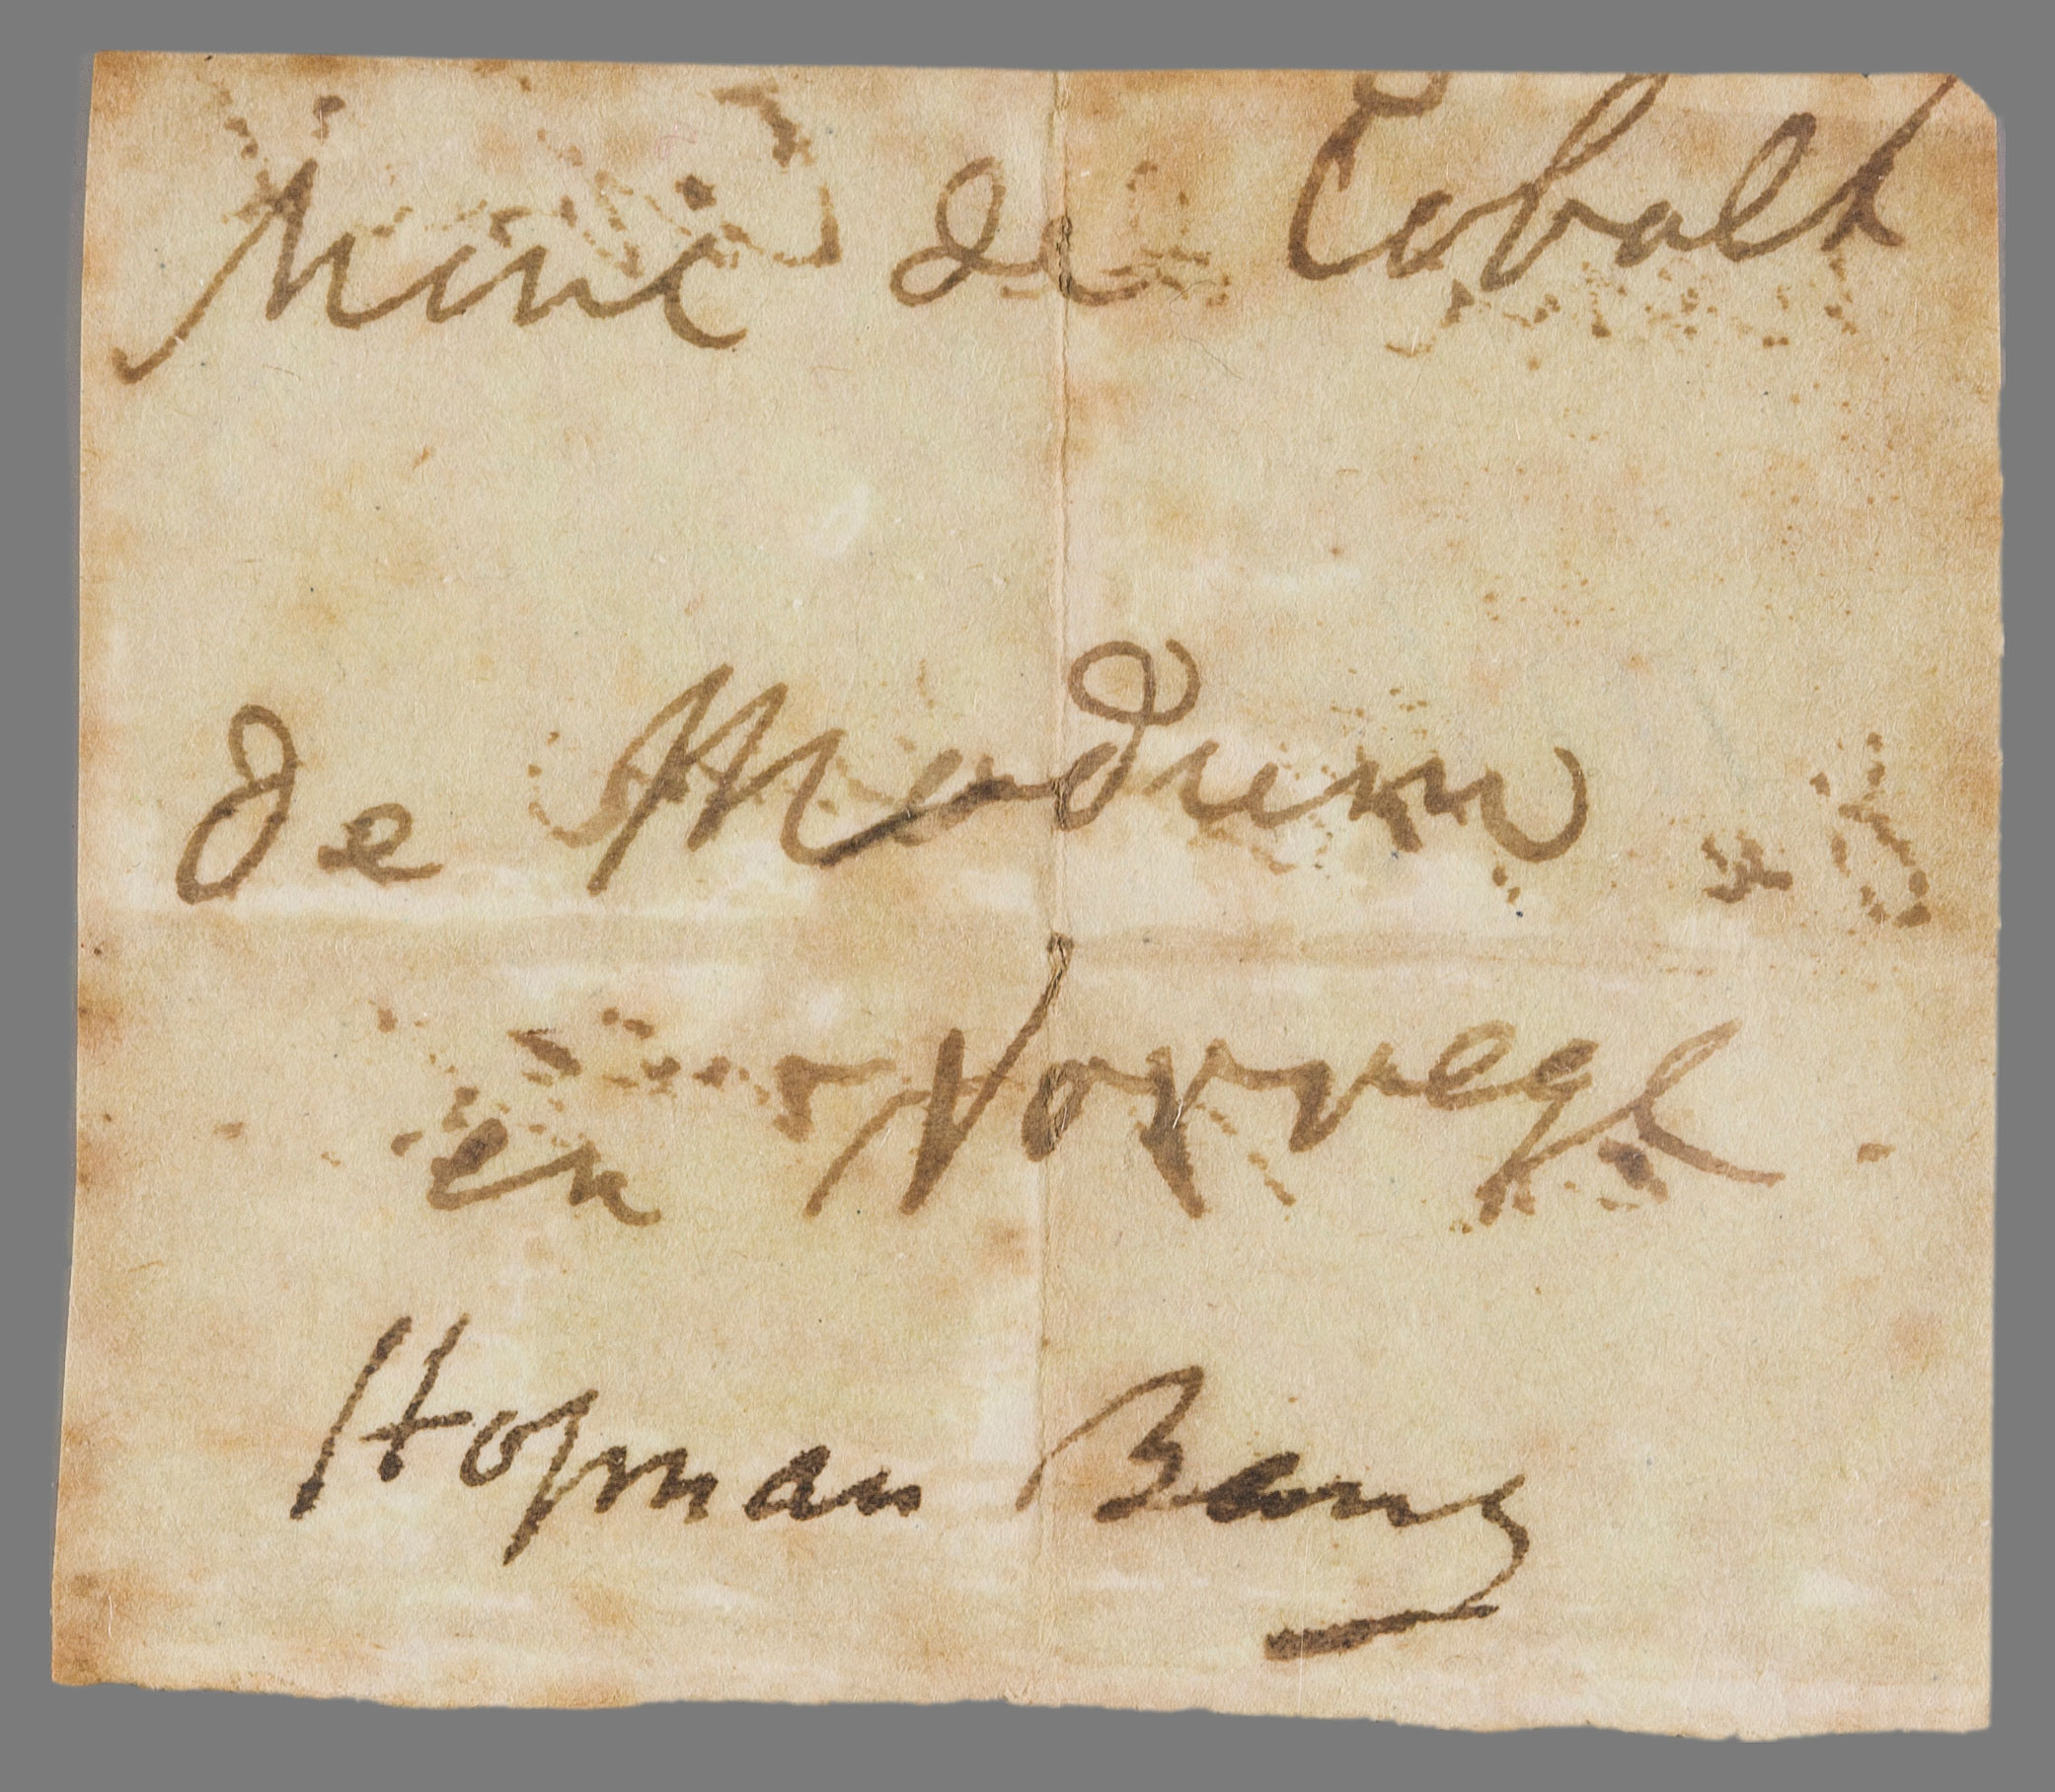 Mine de Cobalt
de Modum
en Norvege
Hofman Bang